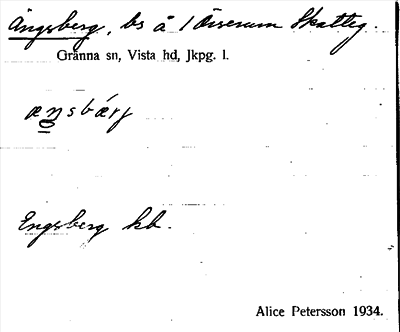 Ängsberg, bs å 1 Örserum Skatteg.
Gränna sn, Vista hd, Jkpg. l.
æŋsbærj
Engsberg kb.
Alice Petersson 1934.